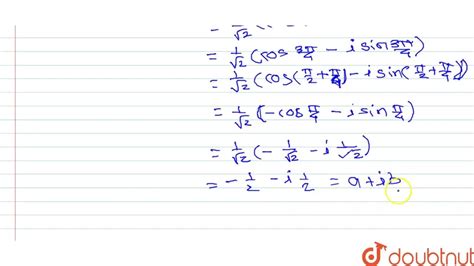 1/√2
= 1/√2 (cos 3π/4 - i sin 3π/4)
= 1/√2 (cos(π/2 + π/4) - i sin(π/2 + π/4))
= 1/√2 (-cos π/4 - i sin π/4)
= 1/√2 (-1/√2 - i 1/√2)
= -1/2 - i 1/2 = a + ib
doubtnut